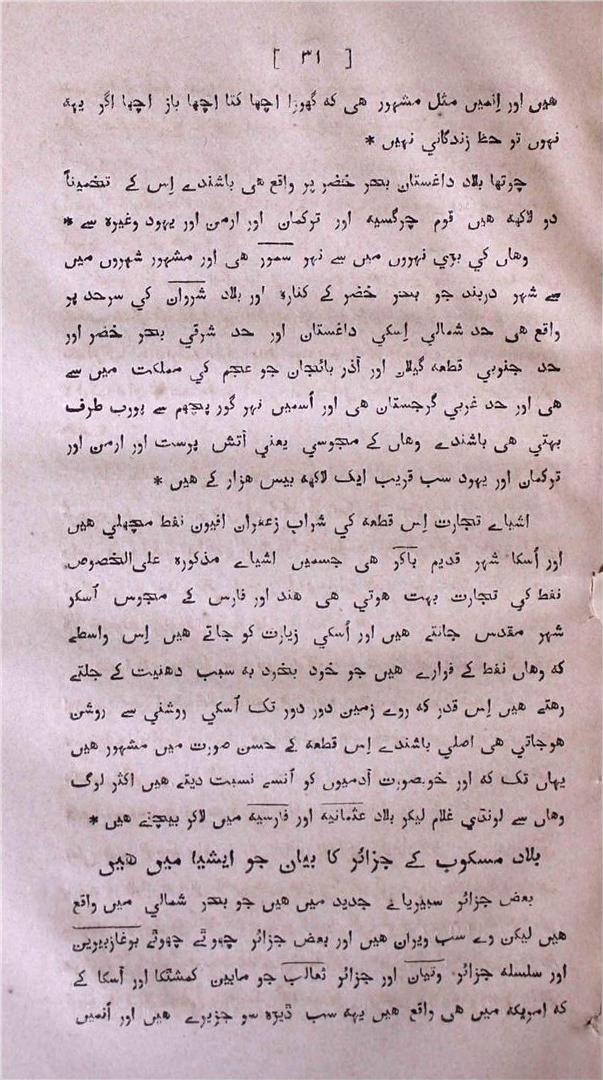 [ ٣١ ]
هیں اور اِنمیں مثل مشہور هی که گھوڑا اچھا کتا اچھا باز اچھا اگر یہه
نہوں تو حظ زندگانی نہیں *
چوتھا بلاد داغستان بحر خضر پر واقع هی باشندے اِس کے تخمیناً
دو لاکھه هیں قوم چرگسیه اور ترکمان اور ارمن اور یہود وغیرہ سے *
وهاں کی بڑی نہروں میں سے نہر سمور هی اور مشہور شہروں میں
سے شہر دربند جو بحر خضر کے کنارہ اور بلاد شروان کی سرحد پر
واقع هی حد شمالی اِسکی داغستان اور حد شرقی بحر خضر اور
حد جنوبی قطعه گیلان اور آذر بائجان جو عجم کی مملکت میں سے
هی اور حد غربی گرجستان هی اور اُسمیں نہر گور پچھم سے پورب طرف
بہتی هی باشندے وهاں کے مجوسی یعنی آتش پرست اور ارمن اور
ترکمان اور یہود سب قریب ایک لاکھه بیس هزار کے هیں *
اشیاے تجارت اِس قطعه کی شراب زعفران افیون نفط مچھلی هیں
اور اُسکا شہر قدیم باکو هی جسمیں اشیاے مذکورہ علی الخصوص
نفط کی تجارت بہت هوتی هی هند اور فارس کے مجوس اُسکو
شہر مقدس جانتے هیں اور اُسکی زیارت کو جاتے هیں اِس واسطے
که وهاں نفط کے فوارے هیں جو خود بخود به سبب دهنیت کے جلتے
رهتے هیں اِس قدر که روے زمین دور دور تک اُسکی روشنی سے روشن
هوجاتی هی اصلی باشندے اِس قطعه کے حسن صورت میں مشہور هیں
یہاں تک که اور خوبصورت آدمیوں کو اُنسے نسبت دیتے هیں اکثر لوگ
وهاں سے لونڈی غلام لیکر بلاد عثمانیه اور فارسیه میں لاکر بیچتے هیں *
بلاد مسکوب کے جزائر کا بیان جو ایشیا میں هیں
بعض جزائر سیبریاے جدید میں هیں جو بحر شمالی میں واقع
هیں لیکن وے سب ویران هیں اور بعض جزائر چھوٹے چھوٹے بوغازبیرین
اور سلسله جزائر وتیان اور جزائر ثعالب جو مابین کمشتکا اور آسکا کے
که امریکه میں هی واقع هیں یہه سب ڈیڑہ سو جزیرے هیں اور اُنمیں